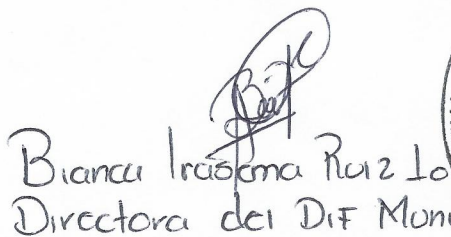 Bianca Irasema Ruiz Lo
Directora del DIF Muni